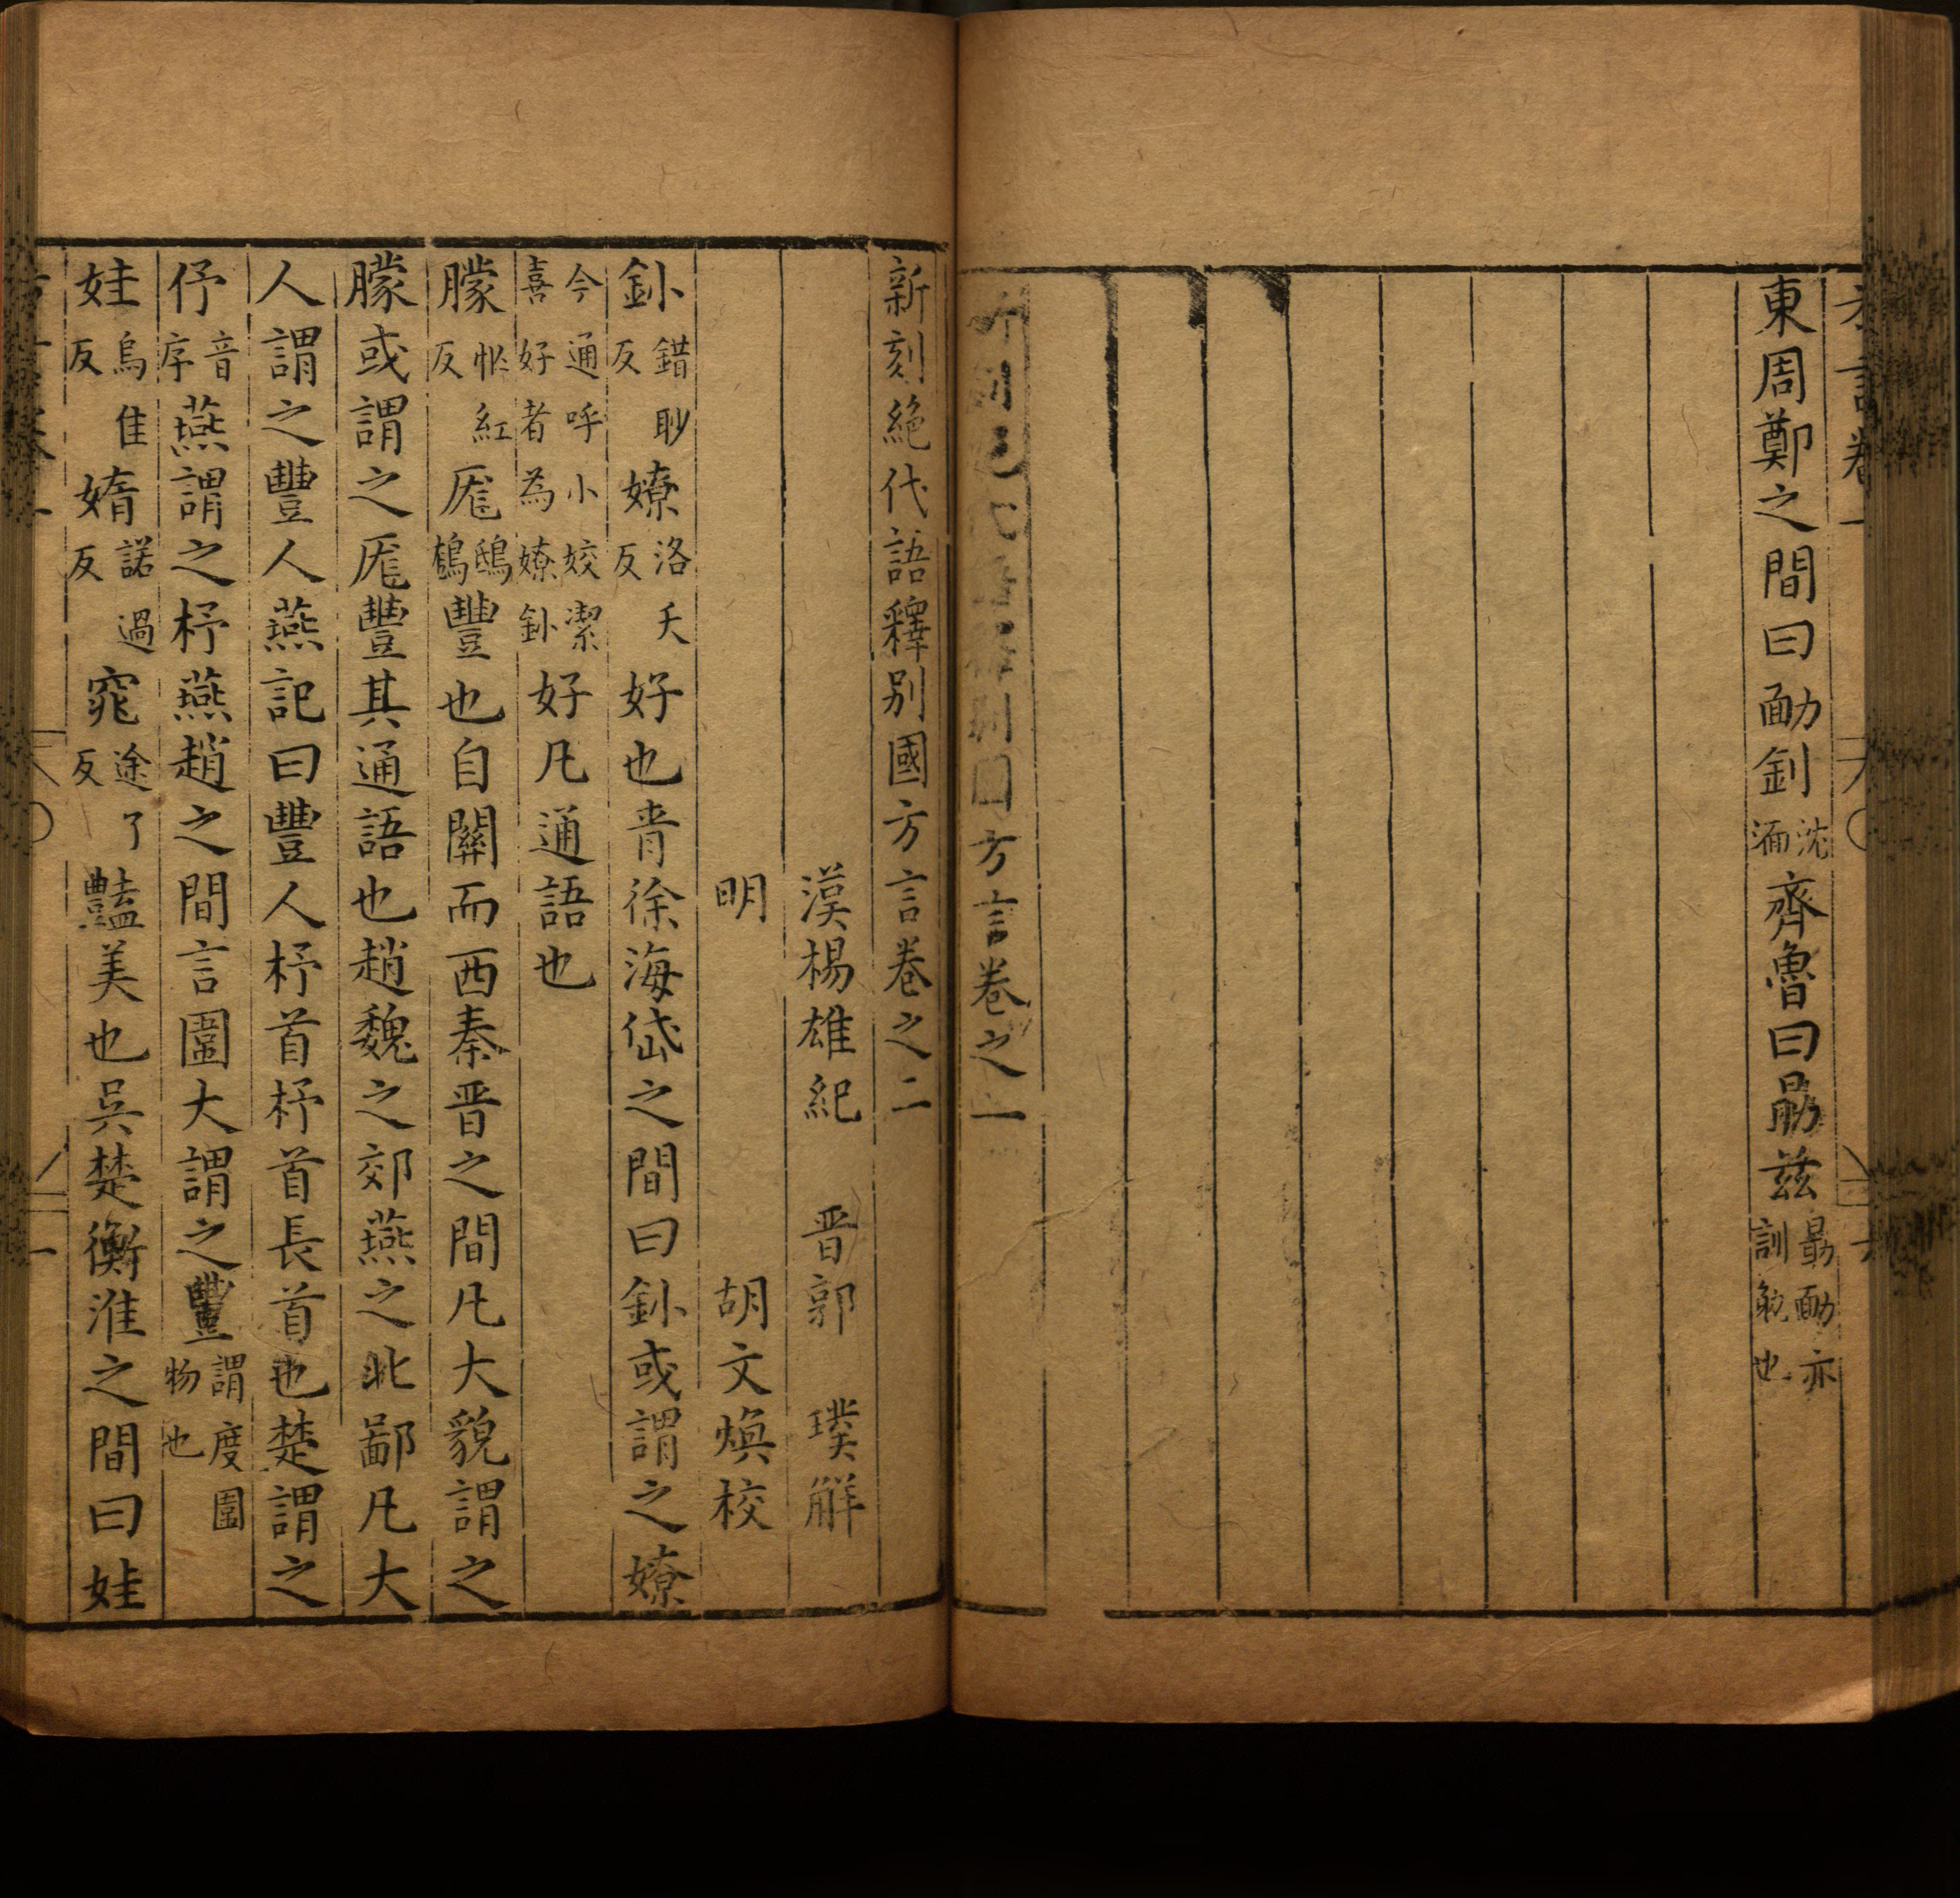 東周鄭之間曰勔釗沈湎齊魯曰勗兹勗勔亦訓勉也
方言卷之一
新刻絶代語釋别國方言卷之二
漢楊雄紀 晋郭璞解
明 胡文煥校
釥錯眇反嫽洛夭反好也青徐海岱之間曰釥或謂之嫽
今通呼小姣潔喜好者為嫽釥好凡通語也
朦忙紅反厖鴟鵂豐也自關而西秦晋之間凡大貌謂之
朦或謂之厖豐其通語也趙魏之郊燕之北鄙凡大
人謂之豐人燕記曰豐人杼首杼首長首也楚謂之
伃音序燕謂之杼燕趙之間言圍大謂之豐謂度圍物也
娃烏佳反嫷諾過反窕途了反豔美也吳楚衡淮之間曰娃